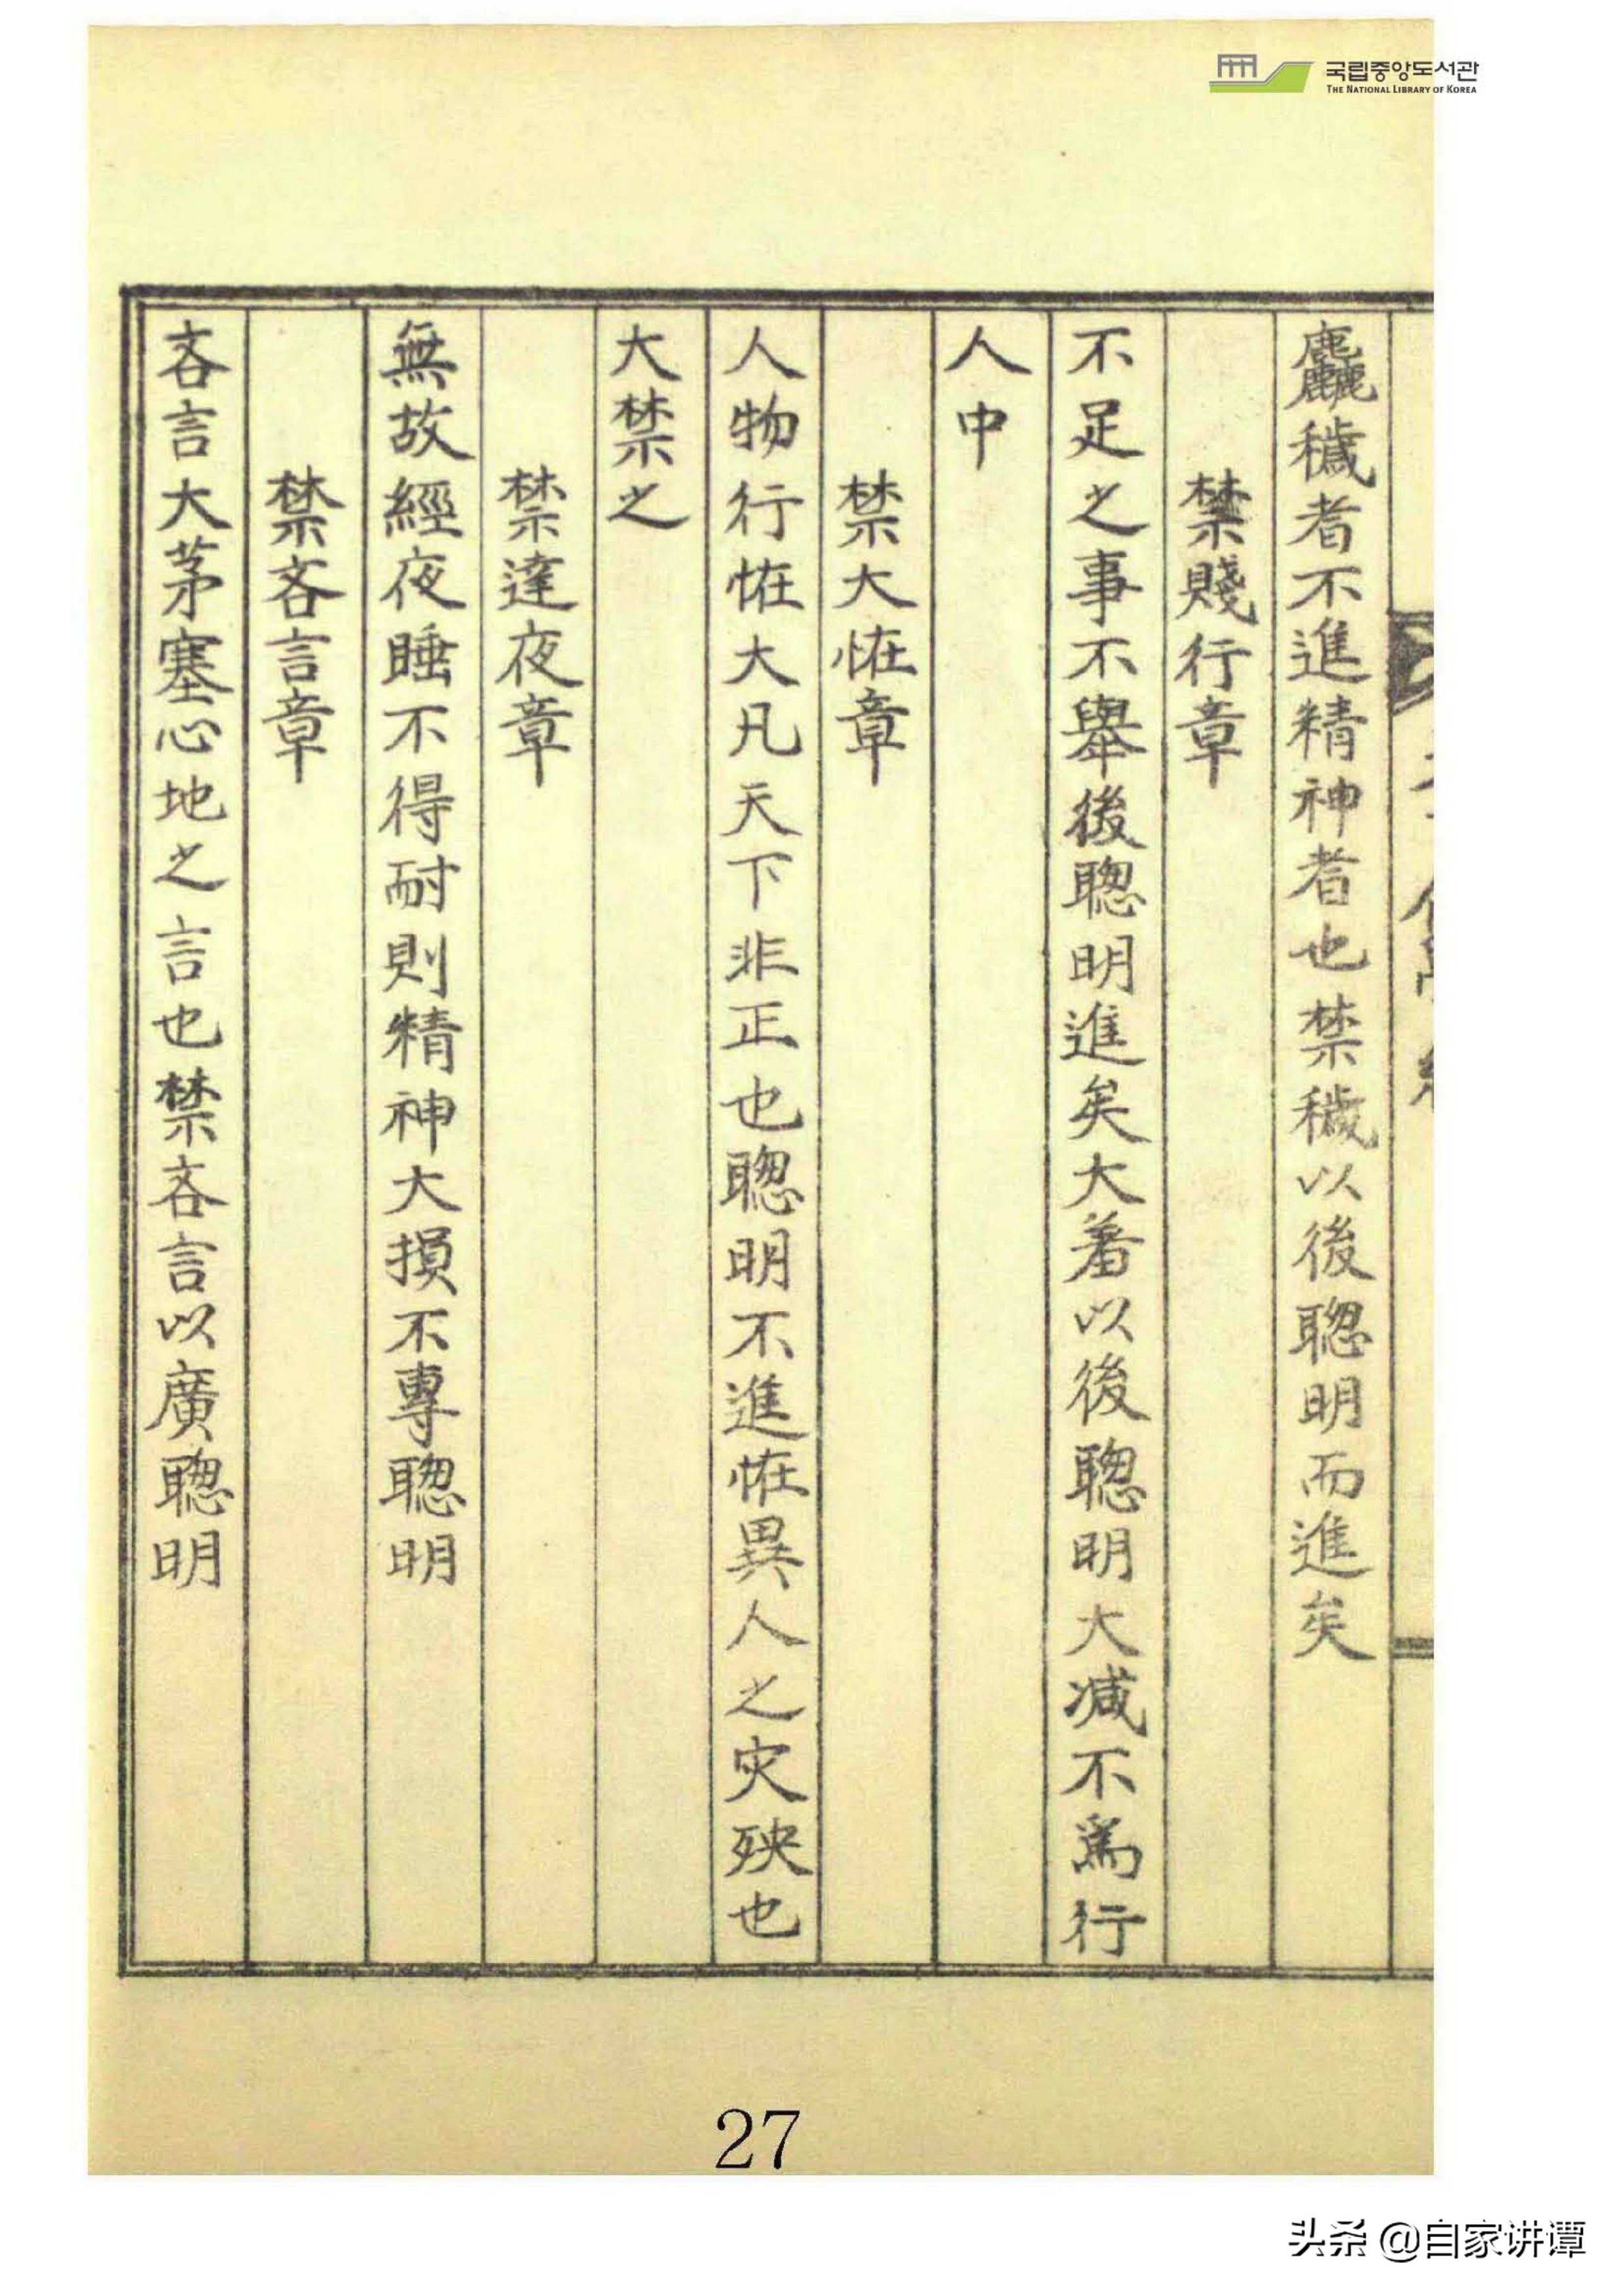 국립중앙도서관
THE NATIONAL LIBRARY OF KOREA
麤穢者不進精神者也禁穢以後聰明而進矣
禁賤行章
不足之事不舉後聰明進矣大着以後聰明大减不爲行
人中
禁大恠章
人物行恠大凡天下非正也聰明不進恠異人之灾殃也
大禁之
禁達夜章
無故經夜睡不得耐則精神大損不專聰明
禁吝言章
吝言大茅塞心地之言也禁吝言以廣聰明
27
头条 @自家讲谭